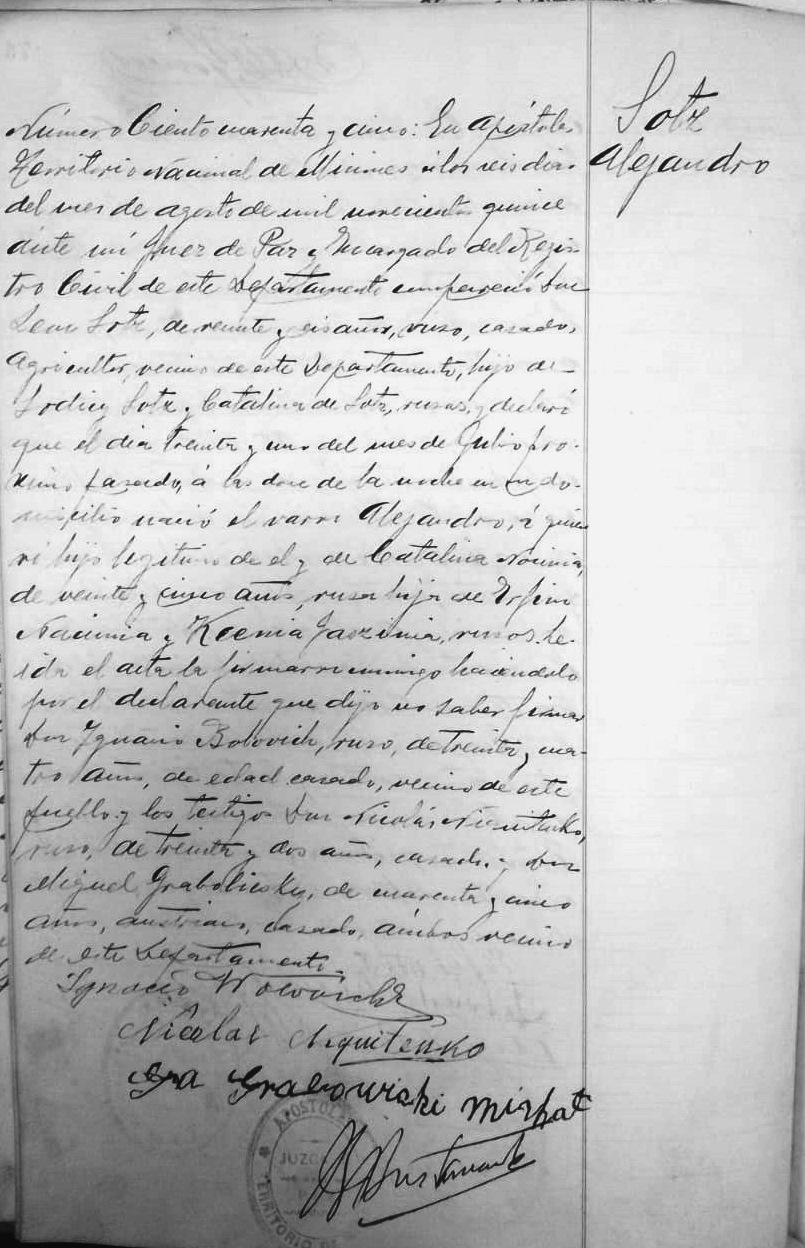 Sotz
Alejandro
Número Ciento cuarenta y cinco: En Apóstoles
Territorio Nacional de Misiones á los seis dias
del mes de agosto de mil novecientos quince
ante mí Juez de Paz y Encargado del Regis-
tro Civil de este Departamento compareció Don
Leon Sotz, de veinte y seis años, ruso, casado,
Agricultor, vecino de este Departamento, hijo de
Sotz y Catalina de Sotz, rusos, y declaró
que el dia treinta y uno del mes de Julio pró-
ximo pasado, á las doce de la noche en su do-
micilio nació el varon Alejandro, á quien
hijo legitimo de el y de Catalina
de veinte y cinco años, rusa hija de
y Kcenia rusos. Le-
ida el acta la firmaron conmigo haciendolo
por el declarante que dijo no saber firmar
Don Ignacio Bolovich, ruso, de treinta y cua-
tro años, de edad casado, vecino de este
pueblo y los testigos Don Nicolás
ruso, de treinta y dos años, casado, y Don
Miguel de cuarenta y cinco
años, austriaco, casado, ámbos vecinos
de este Departamento.
Ignacio
Nicolas
Grabowiski
APOSTOLES
JUZG
TERRITORIO DE